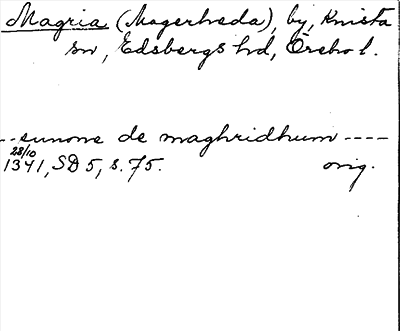 Magria (Magerhveda), by, Knista
sn, Edsbergs hd, Örebro l.
-- sunone de maghridhum ----
28/10
1341, SD 5, s. 75. orig.